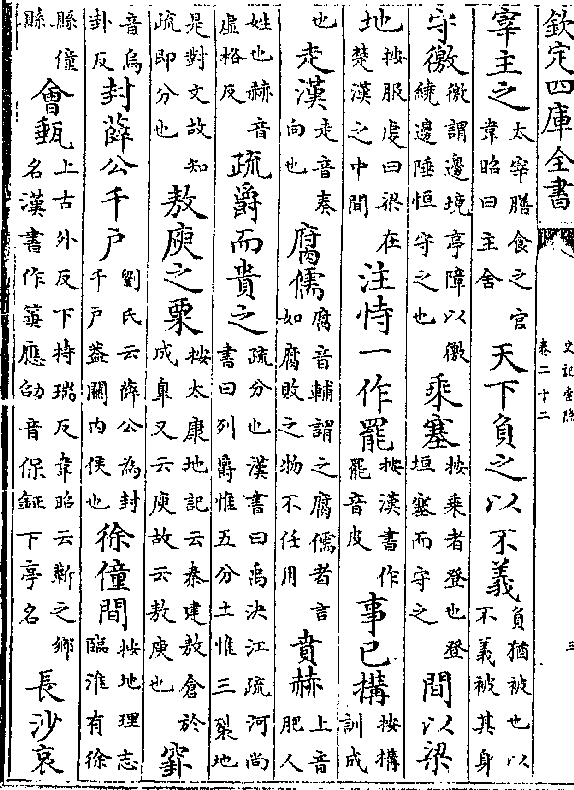 欽定四庫全書
史記索隱
卷二十二
三
宰主之
太宰膳食之官
韋昭曰主舍
天下負之以不義
負猶被也以
不義被其身
守徼
徼謂邊境亭障以徼
繞邊陲恒守之也
乘塞
按乘者登也登
垣塞而守之
間以梁
地
按服虔曰梁在
楚漢之中間
注恃一作罷
按漢書作
罷音皮
事已搆
按搆
訓成
也
走漢
走音奏
向也
腐儒
腐音輔謂之腐儒者言
如腐敗之物不任用
賁赫
上音
肥人
姓也赫音
虛格反
疏爵而貴之
疏分也漢書曰禹決江疏河尚
書曰列爵惟五分土惟三裂地
是對文故知
疏即分也
敖庾之粟
按太康地記云秦建敖倉於
成臯又云庾故云敖庾也
罫
音烏
卦反
封薛公千户
劉氏云薛公為封
千户蓋關内侯也
徐僮間
按地理志
臨淮有徐
縣僮
縣
會甀
上古外反下持瑞反韋昭云蘄之鄉
名漢書作應劭音保鉦下亭名
長沙哀